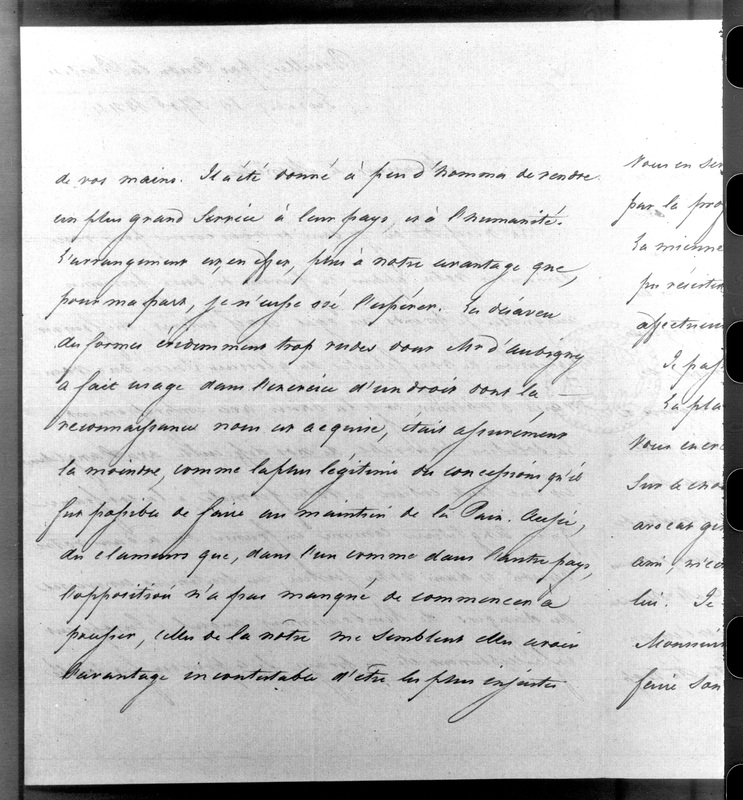 de vos mains. Il a été donné à peu d'hommes de rendre
un plus grand Service à leur pays, et à l'humanité.
L'arrangement est, en effet, plus à notre avantage que,
pour ma part, je n'eusse osé l'espérer. Le désaveu
des formes évidemment trop rudes dont Mr d'Aubigny
a fait usage dans l'exercice d'un droit dont la
reconnaissance nous est acquise, était assurément
la moindre, comme la plus légitime des concessions qu'il
fut possible de faire au maintien de la Paix. Aussi,
des clameurs que, dans l'un comme dans l'autre pays,
l'opposition n'a pas manqué de commencer à
pousser, celles de la notre me semblent elles avoir
l'avantage incontestable d'être les plus injustes
Nous en
par la
La mienne
affectueu
Je
La
Vous
Sur le
avocat
ami,
lui. Je
Monsieur
faire son